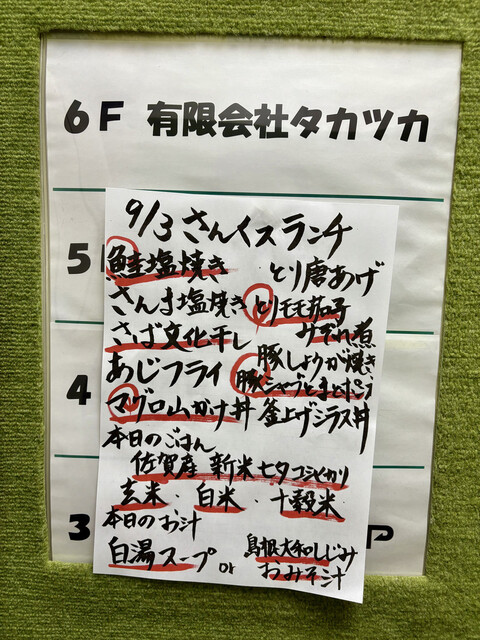 6F 有限会社タカツカ
5
4
3
P
9/3 さんくスランチ
鮭塩焼き
さんま塩焼き
さば文化干し
あじフライ
マグロ山かけ丼
とり唐あげ
とりモモ茄子
みぞれ煮
豚しょうが焼き
豚シャブとまとポン
釜上げシラス丼
本日のごはん
佐賀産 新米七夕コシヒカリ
玄米・白米・十穀米
本日のお汁
白湯スープ or
島根大和しじみ
おみそ汁